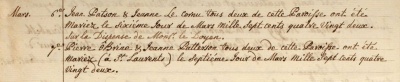 Mars. 6.me Jean Patson & Jeanne Le Cornu tous deux de cette Paroisse ont été
Mariez le Sixième Jour de Mars Mille Sept cents quatre Vingt deux.
Sur la Dispense de Mons.r le Doyen.
7.me Pierre Obrine & Jeanne Patterson tous deux de cette Paroisse, ont été
Mariez (à St. Laurents) le Septième Jour de Mars Mille Sept Cents quatre
Vingt deux.